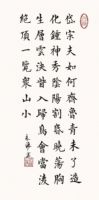 岱宗夫如何齊魯青未了造
化鍾神秀陰陽割昏曉蕩胸
生層雲決眥入歸鳥會當凌
絕頂一覽眾山小